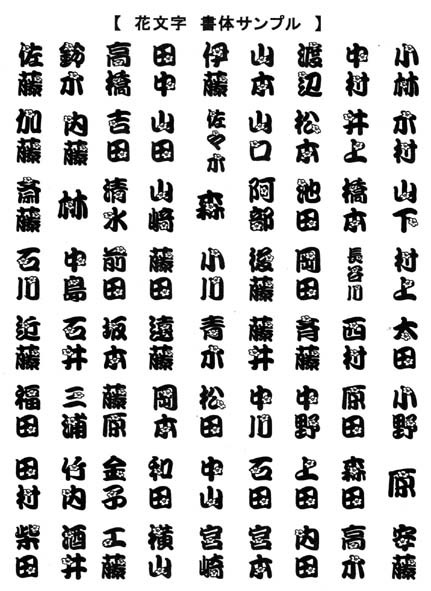 【 花文字 書体サンプル 】
佐藤 鈴木 高橋 田中 伊藤 山本 渡辺 中村 小林
加藤 内藤 吉田 山田 佐々木 山口 松本 井上 木村
斎藤 林 清水 山崎 森 阿部 池田 橋本 山下
石川 中島 前田 藤田 小川 後藤 岡田 長谷川 村上
近藤 石井 坂本 遠藤 青木 藤井 斉藤 西村 太田
福田 三浦 藤原 岡本 松田 中川 中野 原田 小野
田村 竹内 金子 和田 中山 石田 上田 森田 原
柴田 酒井 工藤 横山 宮崎 宮本 内田 高木 安藤